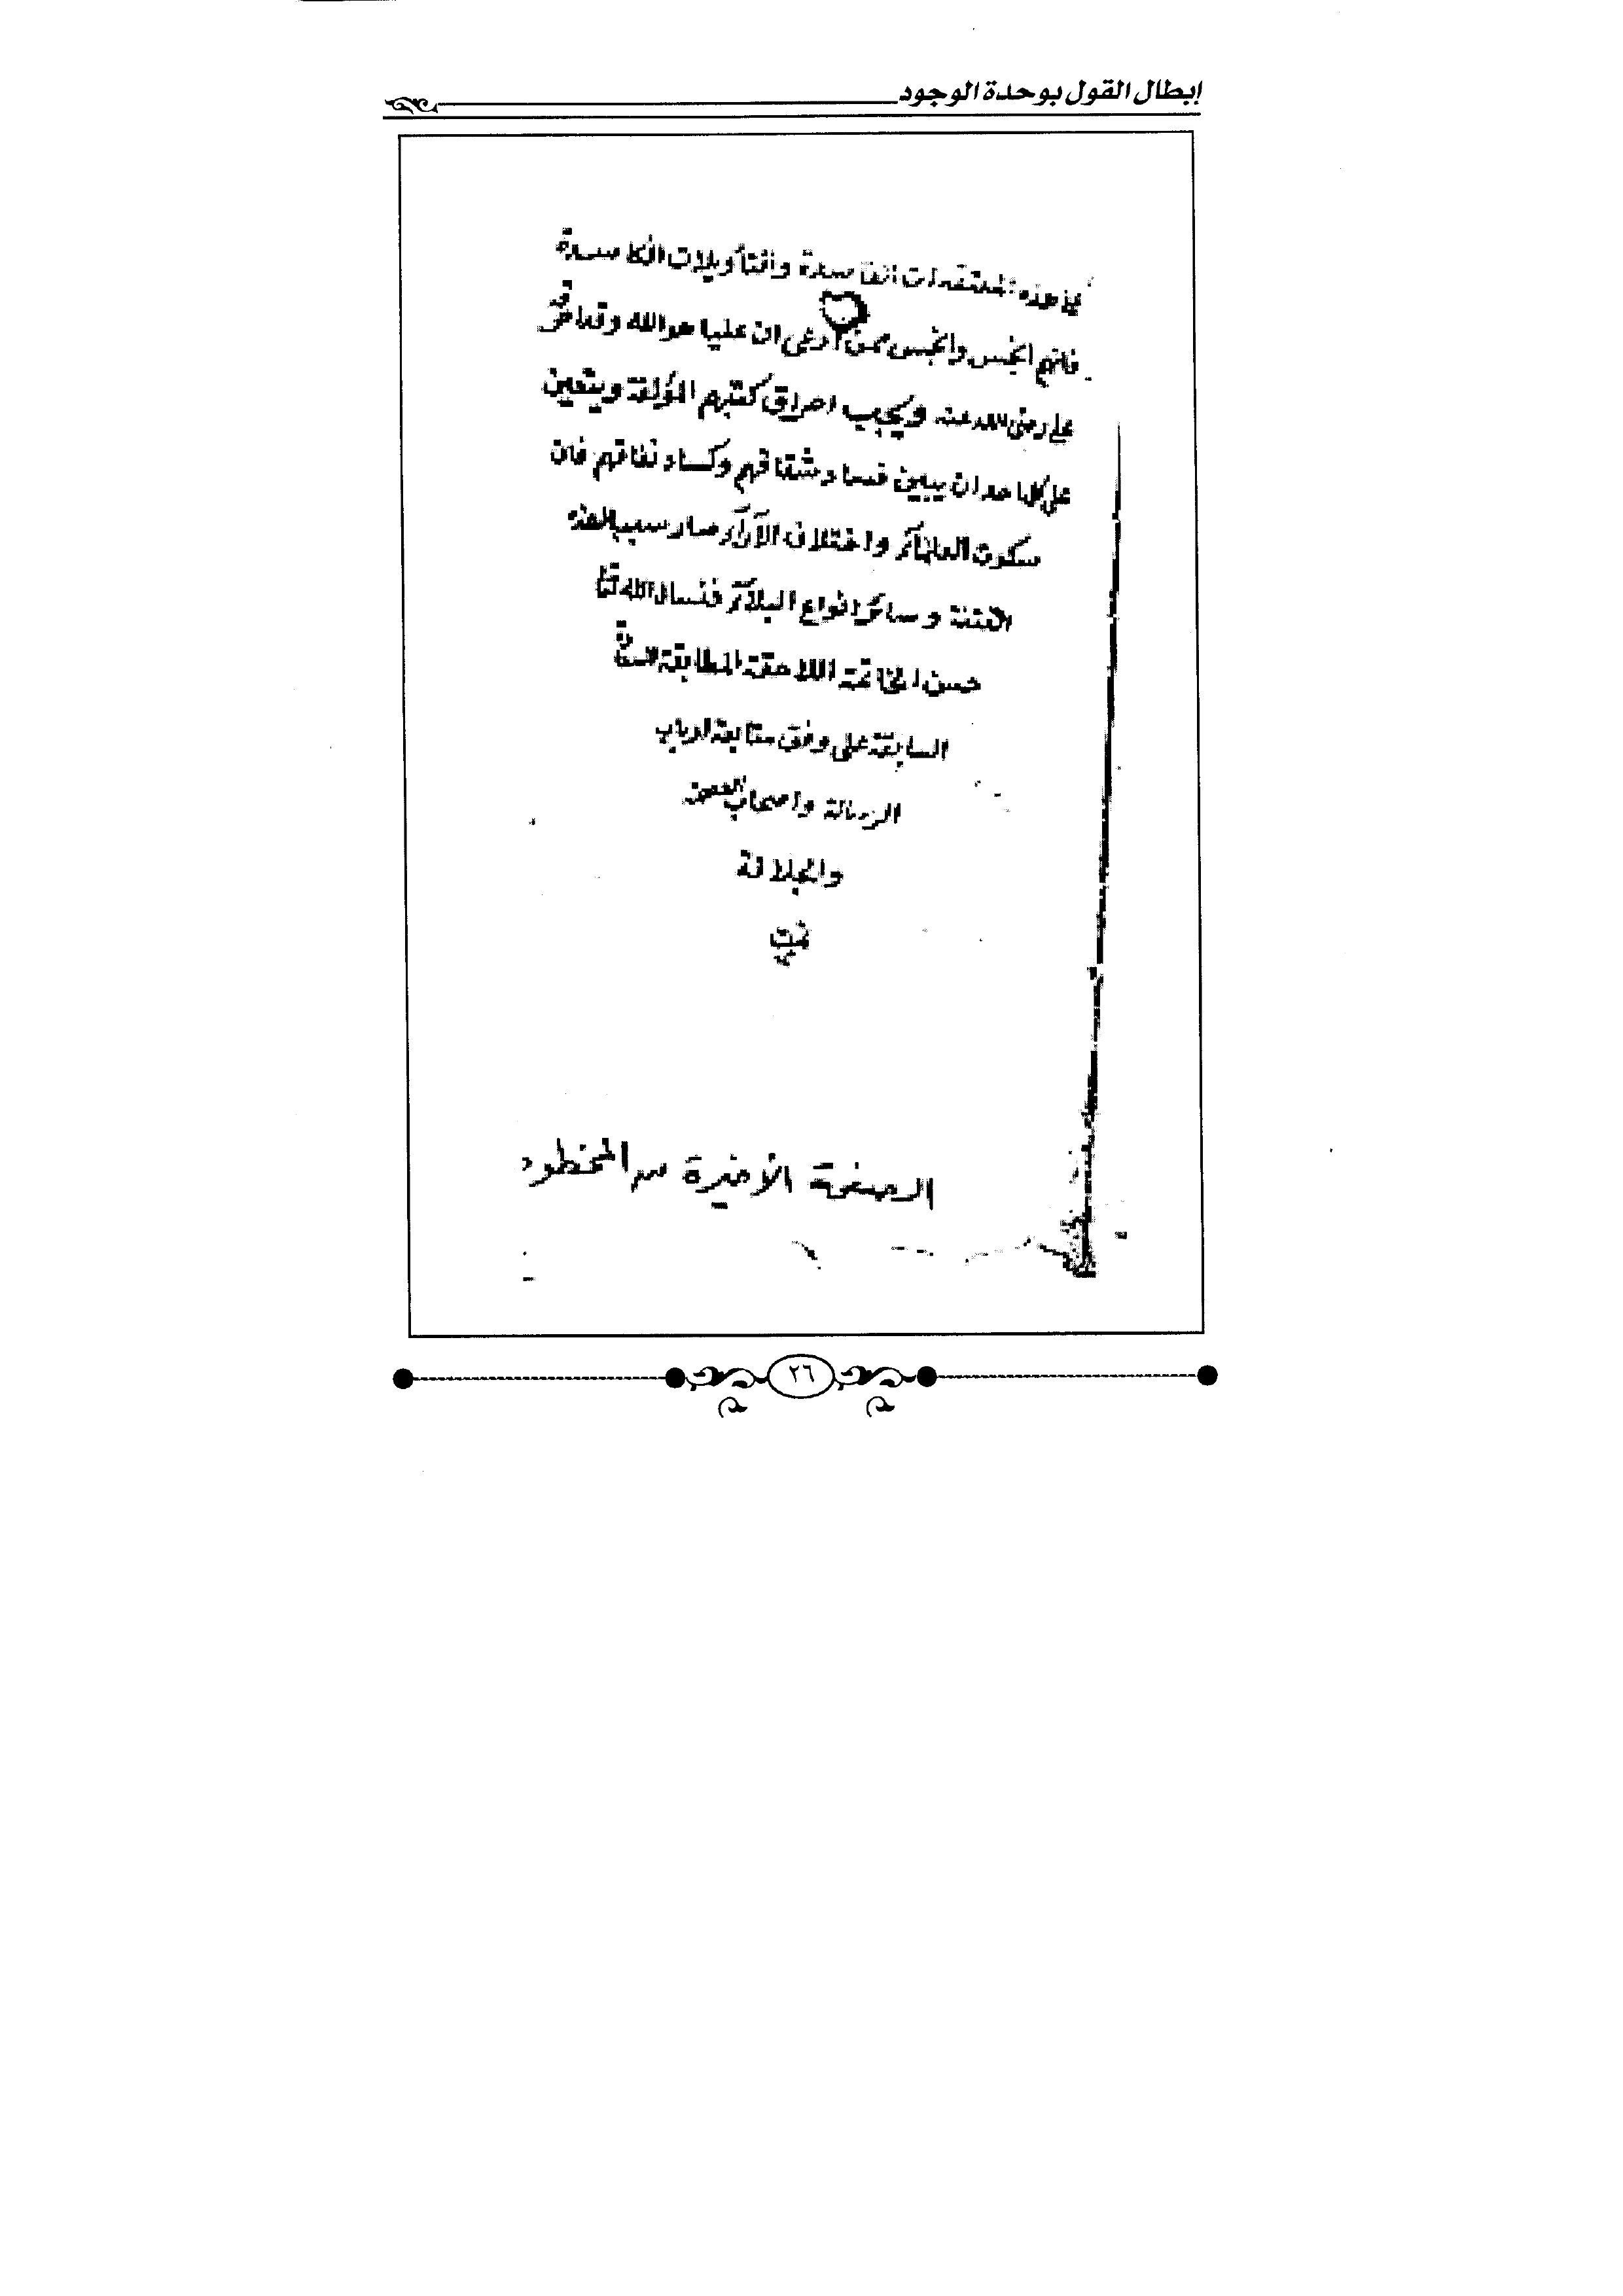 إبطال القول بوحدة الوجود
هذه المعتقدات الفاسدة والتأويلات الكاسدة
فانهم انجس وانجس ممن ادعى ان عليا هو الله وقد احرقهم
على رضى الله عنه ويجب احراق كتبهم المؤلفة ويتعين
على كل احد ان يبين فساد شقاقهم وكساد نفاقهم فان
سكوت العلماء واختلاف الآراء صار سببا لهذه
الفتنة وسائر انواع البلاء فنسال الله تعا
حسن الخاتمة اللاحقة المطابقة
السابقة على وفق متابعة ارباب
الرسالة واصحاب
والجلالة
تمت
الصفحة الأخيرة من المخطوط
٢٦